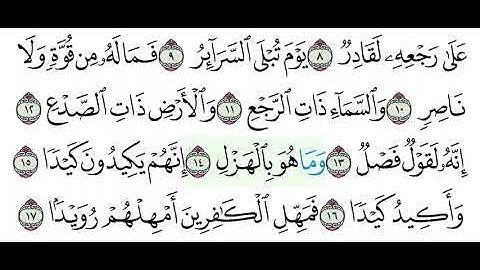 عَلَىٰ رَجۡعِهِۦ لَقَادِرٞ ٨ يَوۡمَ تُبۡلَى ٱلسَّرَآئِرُ ٩ فَمَا لَهُۥ مِن قُوَّةٖ وَلَا
نَاصِرٖ ١٠ وَٱلسَّمَآءِ ذَاتِ ٱلرَّجۡعِ ١١ وَٱلۡأَرۡضِ ذَاتِ ٱلصَّدۡعِ ١٢
إِنَّهُۥ لَقَوۡلٞ فَصۡلٞ ١٣ وَمَا هُوَ بِٱلۡهَزۡلِ ١٤ إِنَّهُمۡ يَكِيدُونَ كَيۡدٗا ١٥
وَأَكِيدُ كَيۡدٗا ١٦ فَمَهِّلِ ٱلۡكَٰفِرِينَ أَمۡهِلۡهُمۡ رُوَيۡدَۢا ١٧